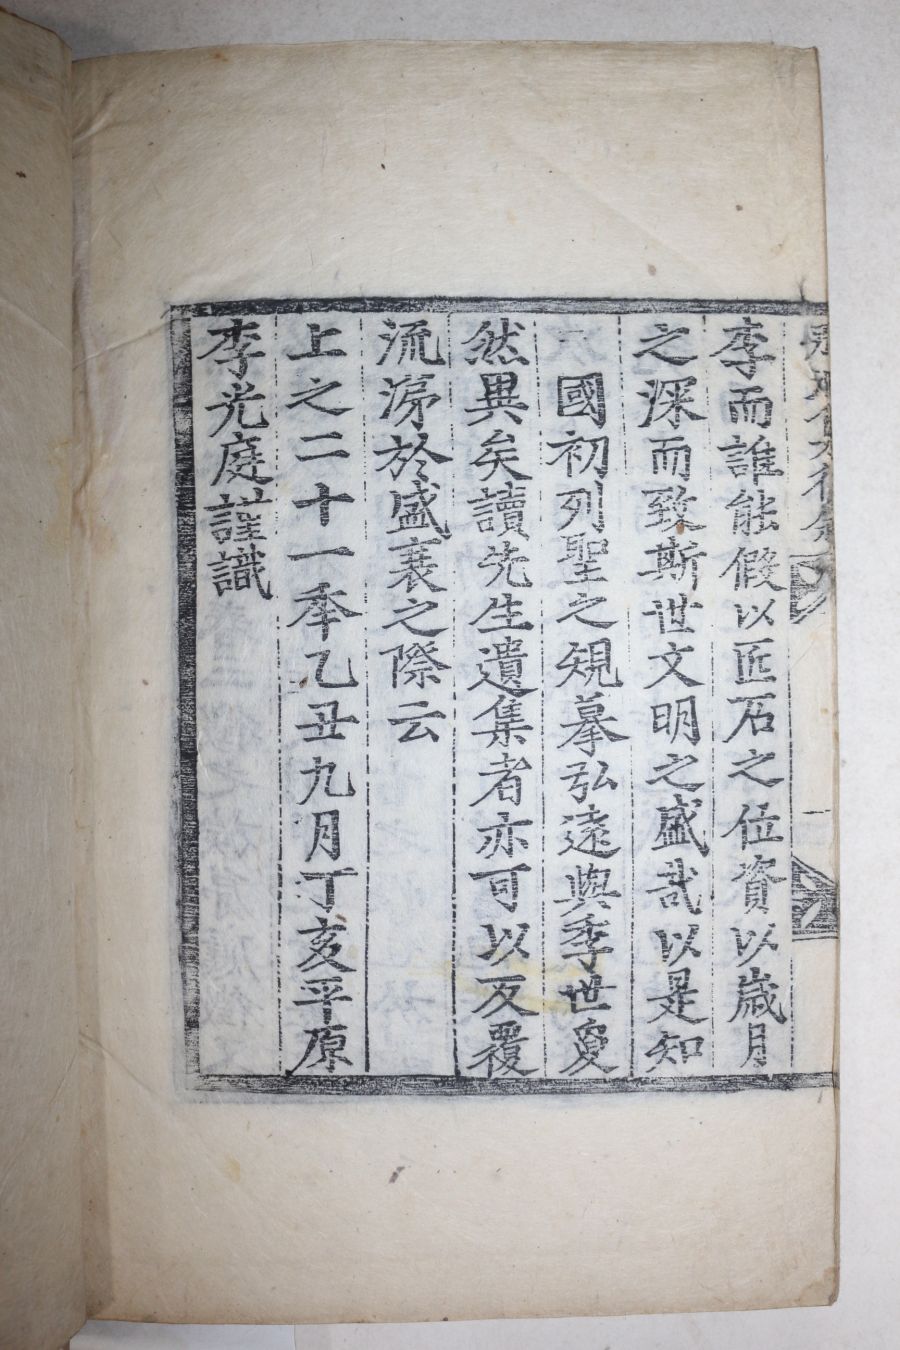 李而誰能假以匠石之位資以歲月
之深而致斯世文明之盛哉以是知
國初列聖之規摹弘遠與季世夐
然異矣讀先生遺集者亦可以反覆
流涕於盛衰之際云
上之二十一年乙丑九月丁亥平原
李光庭謹識